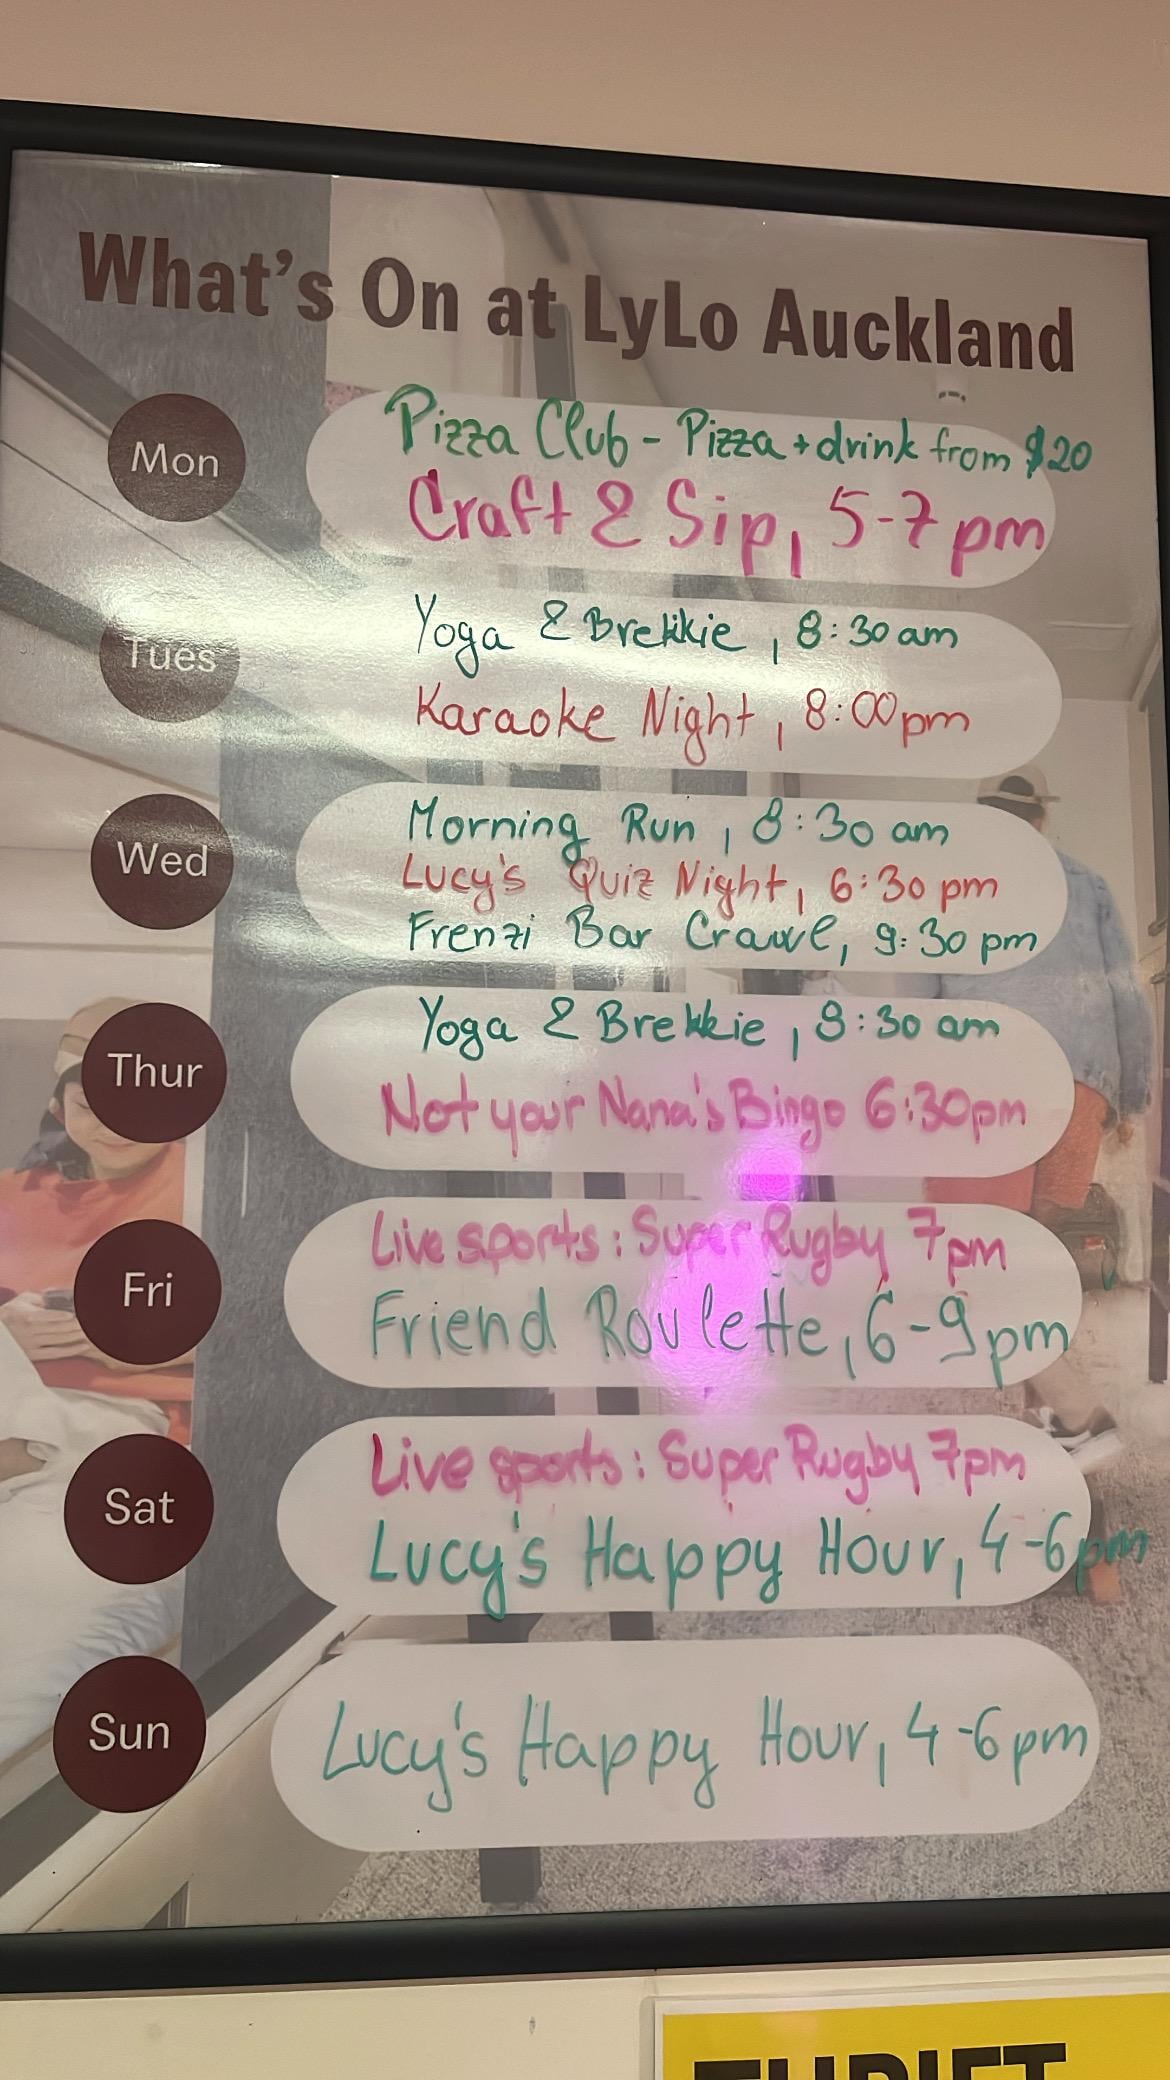 What's On at LyLo Auckland
Mon
Pizza Club - Pizza + drink from $20
Craft & Sip, 5-7pm
Tues
Yoga & Brekkie, 8:30 am
Karaoke Night, 8:00pm
Wed
Morning Run, 8:30 am
Lucy's Quiz Night, 6:30 pm
Frenzi Bar Crawl, 9:30 pm
Thur
Yoga & Brekkie, 8:30 am
Not your Nana's Bingo 6:30pm
Fri
Live sports: Super Rugby 7pm
Friend Roulette, 6-9pm
Sat
Live sports: Super Rugby 7pm
Lucy's Happy Hour, 4-6pm
Sun
Lucy's Happy Hour, 4-6pm